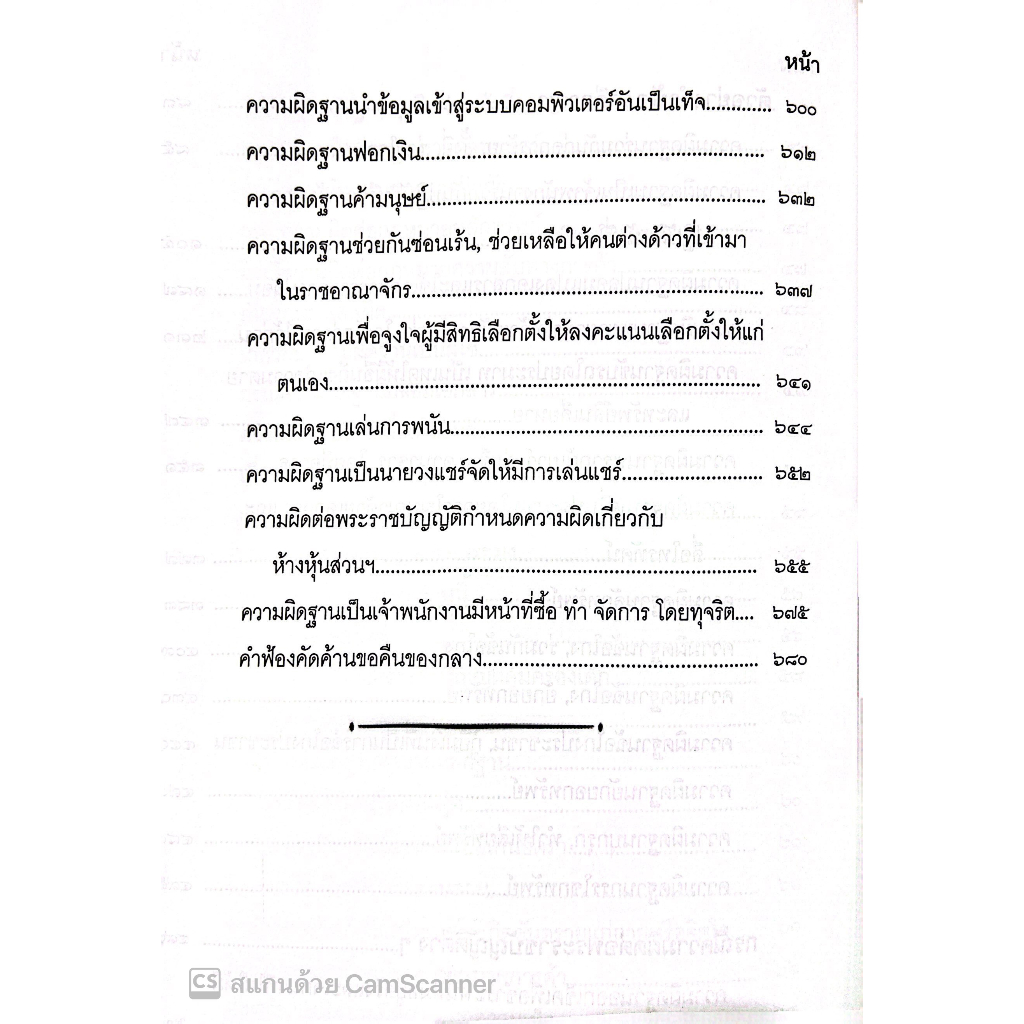 หน้า
ความผิดฐานนำข้อมูลเข้าสู่ระบบคอมพิวเตอร์อันเป็นเท็จ............. ๖๐๐
ความผิดฐานฟอกเงิน.................................................................. ๖๑๒
ความผิดฐานค้ามนุษย์................................................................. ๖๓๒
ความผิดฐานช่วยกันซ่อนเร้น, ช่วยเหลือให้คนต่างด้าวที่เข้ามา
ในราชอาณาจักร..................................................................... ๖๓๗
ความผิดฐานเพื่อจูงใจผู้มีสิทธิเลือกตั้งให้ลงคะแนนเลือกตั้งให้แก่
ตนเอง..................................................................................... ๖๔๑
ความผิดฐานเล่นการพนัน............................................................. ๖๔๔
ความผิดฐานเป็นนายวงแชร์จัดให้มีการเล่นแชร์........................... ๖๕๒
ความผิดต่อพระราชบัญญัติกำหนดความผิดเกี่ยวกับ
ห้างหุ้นส่วนฯ........................................................................... ๖๕๕
ความผิดฐานเป็นเจ้าพนักงานมีหน้าที่ซื้อ ทำ จัดการ โดยทุจริต.... ๖๗๕
คำฟ้องคัดค้านขอคืนของกลาง...................................................... ๖๘๐
CS สแกนด้วย CamScanner